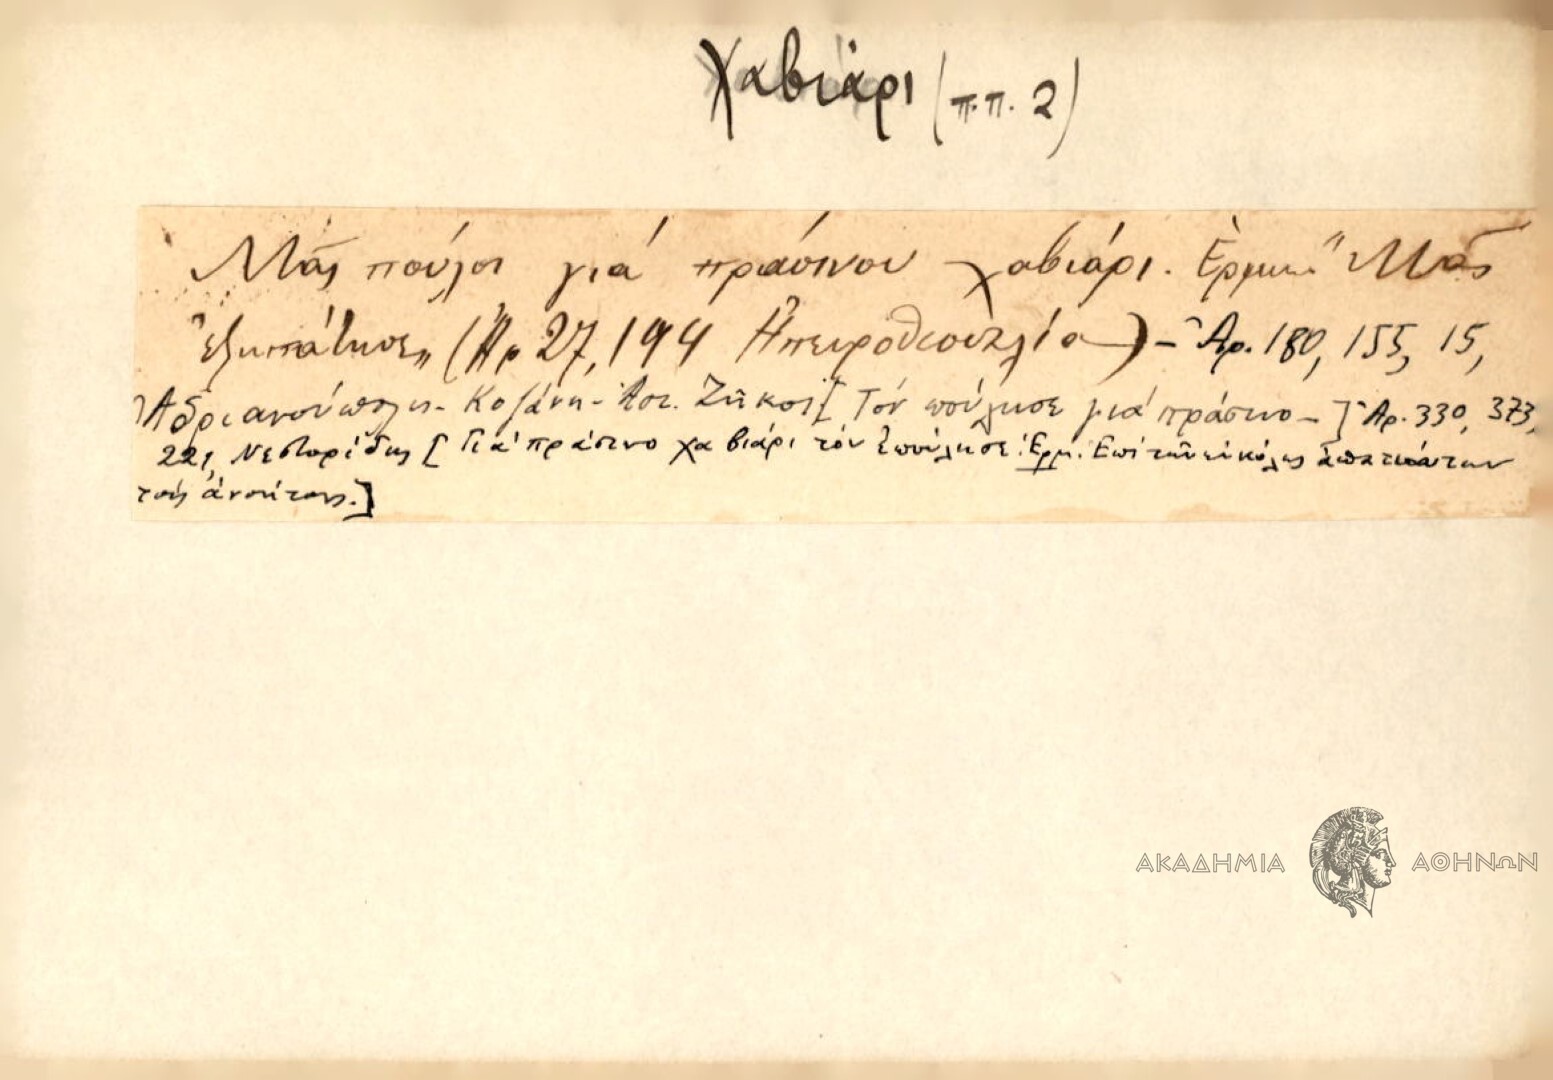 Χαβιάρι (π.π. 2)
Μᾶς πούλοι γιά πράσινον χαβιάρι. Ἑρμ. "Μᾶς
ἐξηπάτησε„ (Ἀρ 27, 194 Ἠπειροθεσσαλία) – Ἀρ. 180, 155, 15,
Ἀδριανούπολις - Κοζάνη - Ἀστ. Ζῆκος [Τόν πούλησε γιά πράσινο –] Ἀρ. 330, 373,
221, Νεστορίδης [Γιά πράσινο χαβιάρι τόν ἐπούλησε. Ἑρμ. Ἐπί τῶν εὐκόλως ἀπατώντων
τούς ἀνοήτους.]
ΑΚΑΔΗΜΙΑ ΑΘΗΝΩΝ